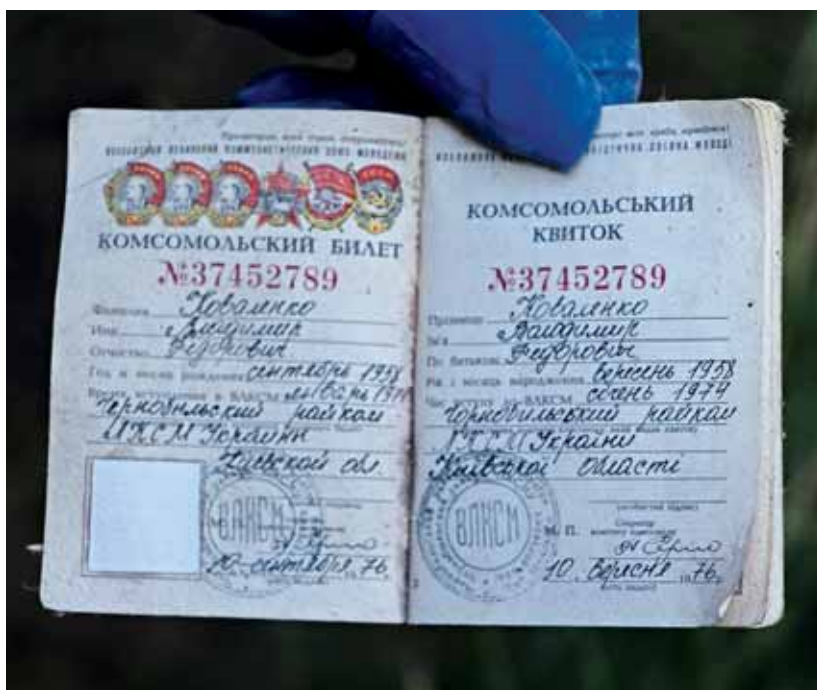 Пролетарии всех стран, соединяйтесь!
ВСЕСОЮЗНЫЙ ЛЕНИНСКИЙ КОММУНИСТИЧЕСКИЙ СОЮЗ МОЛОДЕЖИ
КОМСОМОЛЬСКИЙ БИЛЕТ
№37452789
Фамилия Коваленко
Имя Владимир
Отчество Федорович
Год и месяц рождения сентябрь 1958
Время вступления в ВЛКСМ январь
Чернобыльский райком
ЛКСМ Украины
Киевской обл.
ВЛКСМ
10 сентября 76
КОМСОМОЛЬСЬКИЙ
КВИТОК
№37452789
Прізвище Коваленко
Ім'я Володимир
По батькові Федорович
Рік і місяць народження вересень 1958
Час вступу до ВЛКСМ січень 1974
Чорнобильський райком
ЛКСМ України
Київської області
(особистий підпис)
Секретар
М. П.
ВЛКСМ
10 вересня 1976